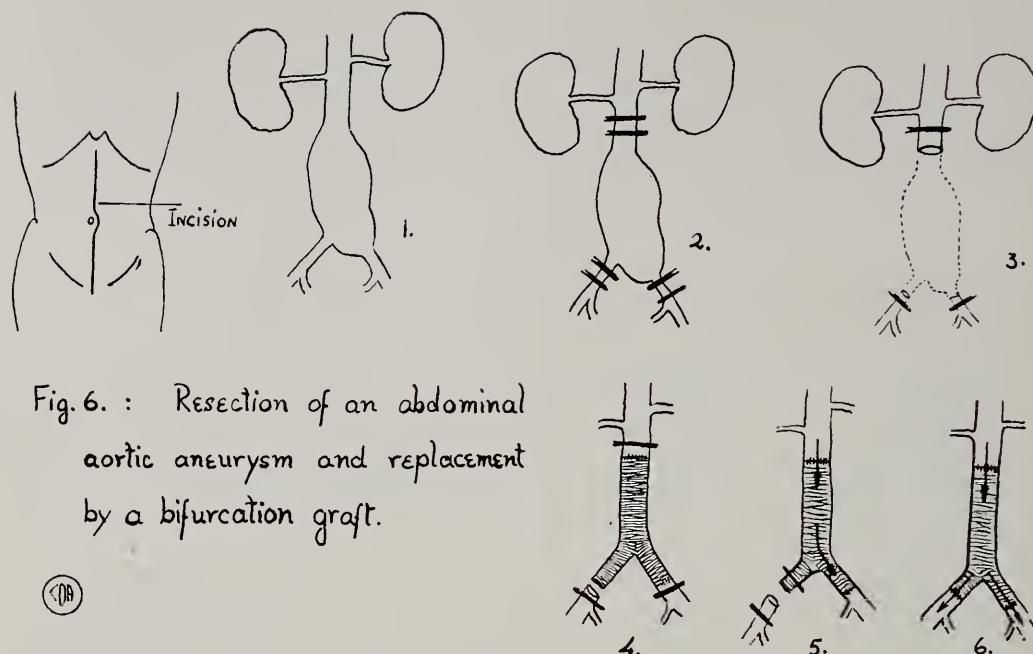 INCISION
1.
2.
3.
Fig. 6. : Resection of an abdominal
aortic aneurysm and replacement
by a bifurcation graft.
4.
5.
6.